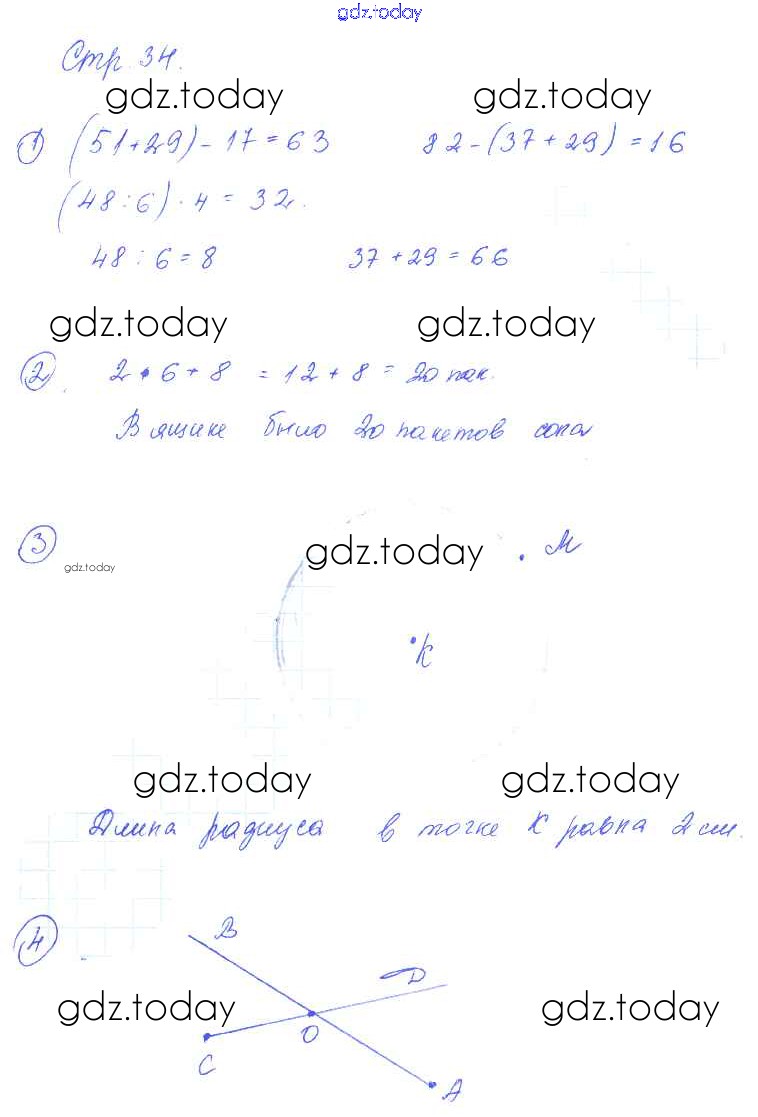 gdz.today
Стр. 34.
gdz.today gdz.today
1 (51+29)-17=63 82-(37+29)=16
(48:6)·4=32.
48:6=8 37+29=66
gdz.today gdz.today
2 2·6+8=12+8=20 пак.
В ящике было 20 пакетов сока
3 gdz.today . М
gdz.today
К
gdz.today gdz.today
Длина радиуса в точке К равна 2 см.
4 В
D
gdz.today gdz.today
О
С
А